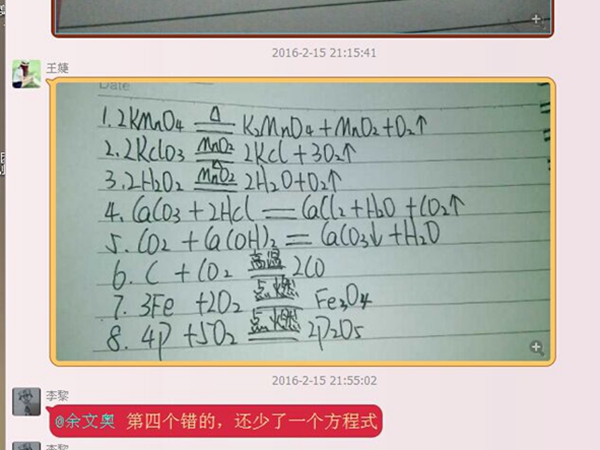 2016-2-15 21:15:41
王婕
Date
1. 2KMnO₄ ≜ K₂MnO₄+MnO₂+O₂↑
2. 2KClO₃ MnO₂ Δ 2KCl+3O₂↑
3. 2H₂O₂ MnO₂ 2H₂O+O₂↑
4. CaCO₃+2HCl = CaCl₂+H₂O+CO₂↑
5. CO₂+Ca(OH)₂ = CaCO₃↓+H₂O
6. C+CO₂ 高温 2CO
7. 3Fe+2O₂ 点燃 Fe₃O₄
8. 4P+5O₂ 点燃 2P₂O₅
2016-2-15 21:55:02
李黎
@余文奥 第四个错的，还少了一个方程式
李黎